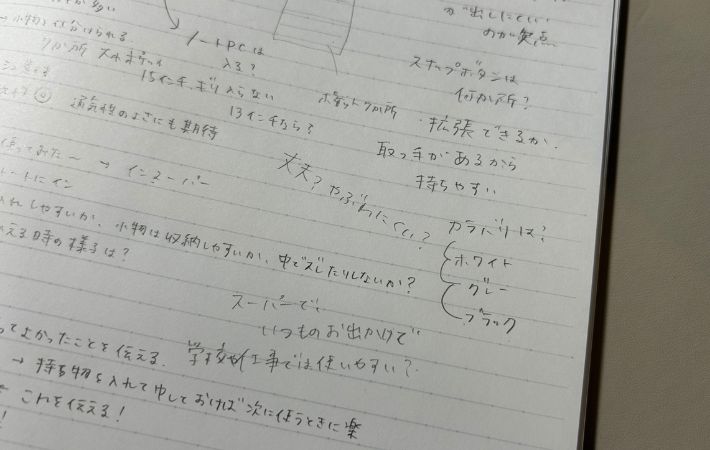 が多い
が出しにくい
のが難点
→小物など分けられる。
ノートPCは
入る?
7か所 大小ポケット
15インチ、ギリ入らない
13インチなら?
ポケット7か所
スナップボタンは
何か所?
・拡張できるか、
取っ手があるから
持ちやすい
通気性のよさにも期待
使ってみた〜 → インスーパー
丈夫?やぶれにくい?
カラバリは?
ホワイト
グレー
ブラック
トートにイン
入れしやすいか、小物は収納しやすいか、中でズレたりしないか?
える時の様子は?
スーパーで、
いつものお出かけで
ってよかったことを伝える。 学校や仕事では使いやすい?
→ 持ち物を入れて
しておけば次に使うときに楽
これを伝える!